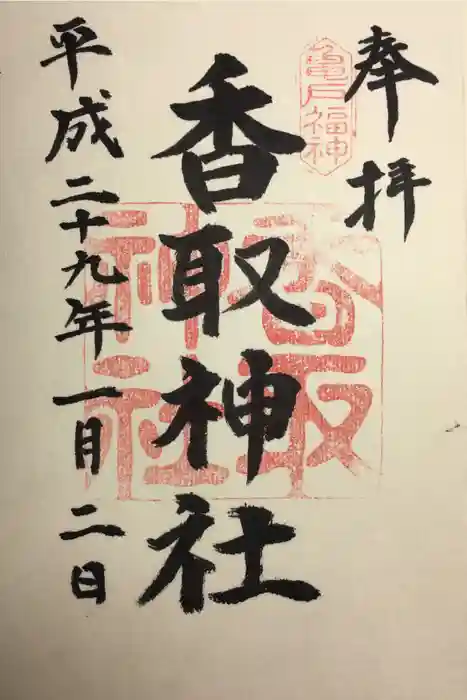 奉拝
亀戸福神
香取神社
香取神社
平成二十九年一月二日